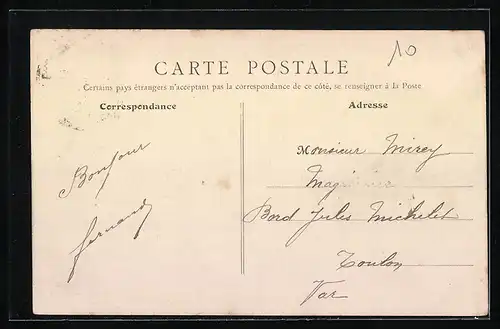 10
CARTE POSTALE
Certains pays étrangers n'acceptant pas la correspondance de ce côté, se renseigner à la Poste
Correspondance
Adresse
Bonjour
Fernand
Monsieur Mirey
Bord Jules Michelet
Toulon
Var